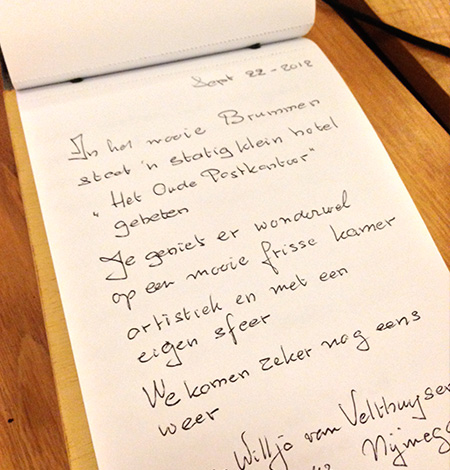 Sept 22 - 2012
In het mooie Brummen
staat 'n statig klein hotel
" Het Oude Postkantoor"
geheten
Je geniet er wonderwel
op een mooie frisse kamer
artistiek en met een
eigen sfeer
We komen zeker nog eens
weer
Willjo van Velthuysen
Nijmeg